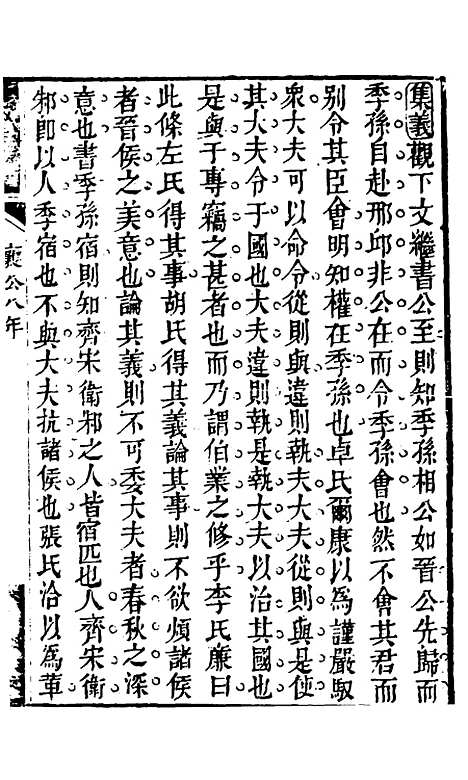 集義觀下文繼書公至則知季孫相公如晉公先歸而
季孫自赴邢邱非公在而令季孫會也然不會其君而
別令其臣會明知權在季孫也卓氏爾康以為謹嚴馭
衆大夫可以命令從則與違則執夫大夫從則與是使
其大夫令于國也大夫違則執是執大夫以治其國也
是與于專竊之甚者也而乃謂伯業之修乎李氏廉曰
此條左氏得其事胡氏得其義論其事則不欲煩諸侯
者晉侯之美意也論其義則不可委大夫者春秋之深
意也書季孫宿則知齊宋衛邾之人皆宿匹也人齊宋衛
邾即以人季宿也不與大夫抗諸侯也張氏洽以為革
襄公八年